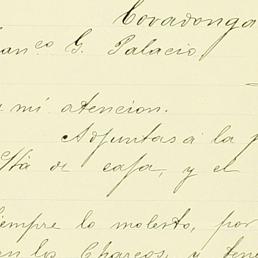 Covadonga
anco G. Palacio
mi atencion.
Adjuntas á la p
de cafa, y el
iempre lo molesto, por
en los Charcos, y ten